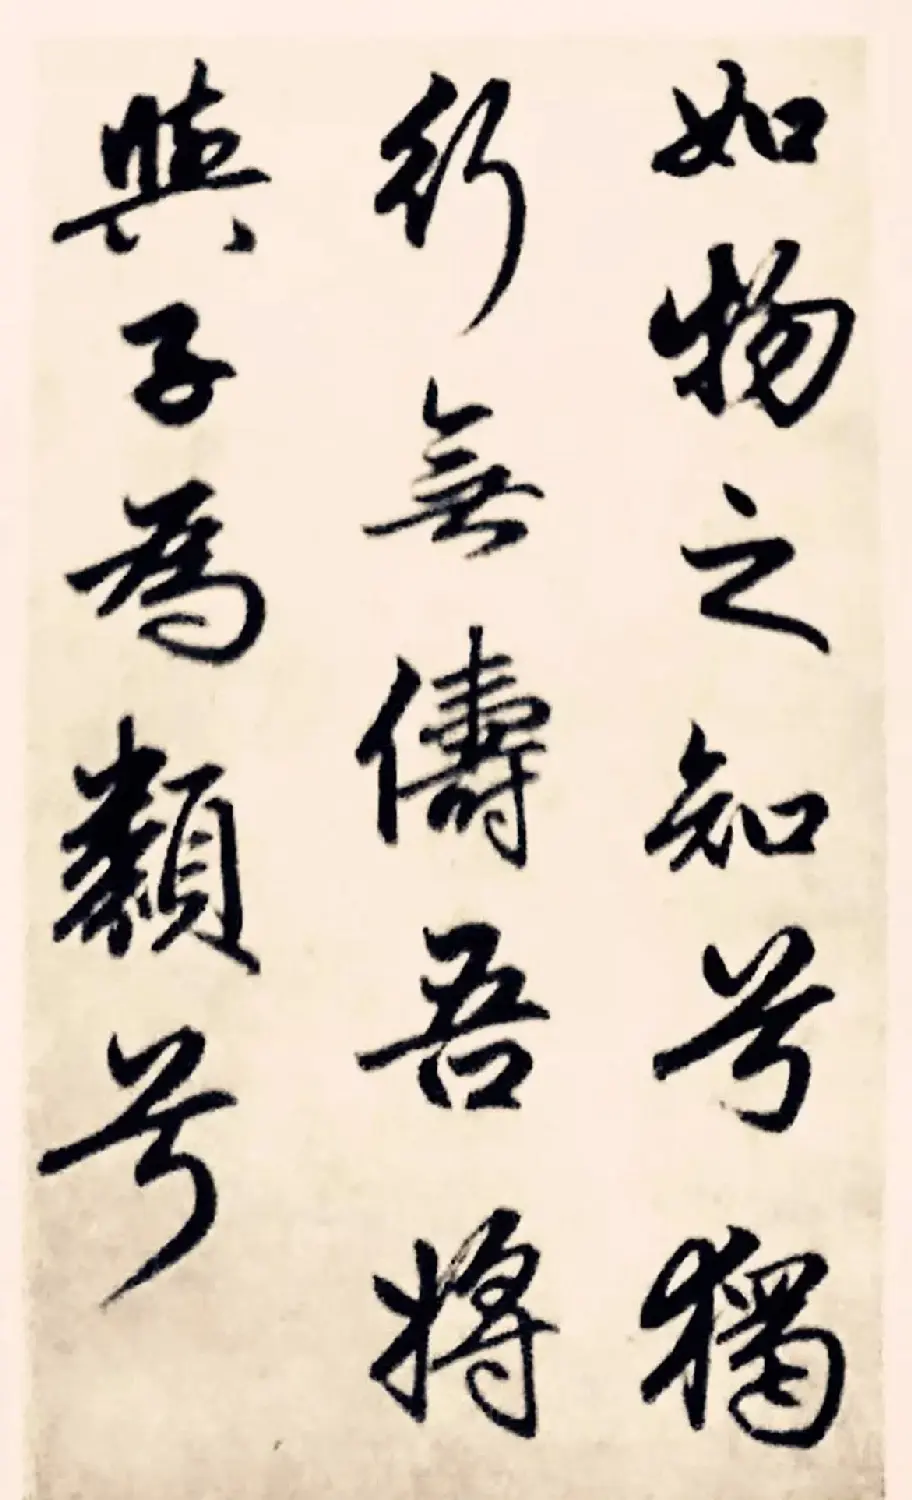 如物之知兮獨
行無儔吾將
與子為類兮